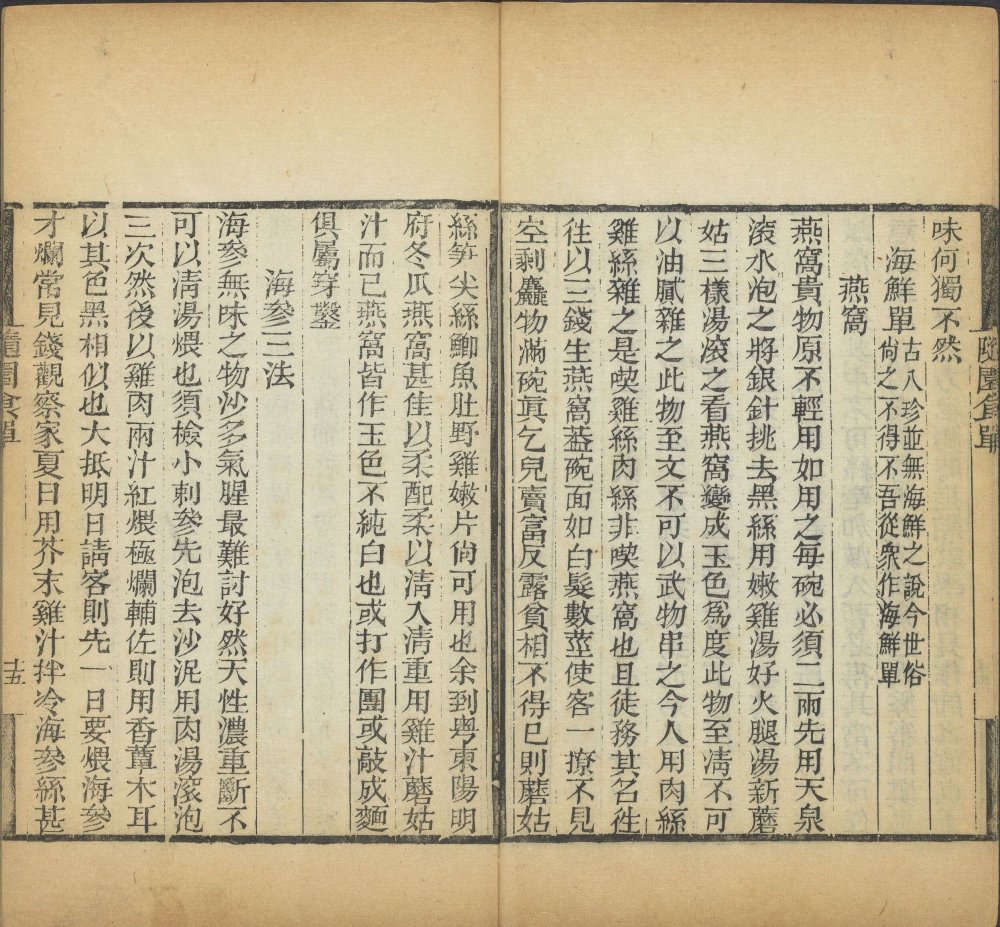 隨園食單
味何獨不然
海鮮單 古八珍並無海鮮之說今世俗
尙之不得不吾從衆作海鮮單
燕窩
燕窩貴物原不輕用如用之每碗必須二兩先用天泉
滚水泡之將銀針挑去黑絲用嫩雞湯好火腿湯新蘑
姑三樣湯滚之看燕窩變成玉色爲度此物至淸不可
以油膩雜之此物至文不可以武物串之今人用肉絲
雞絲雜之是喫雞絲肉絲非喫燕窩也且徒務其名徃
徃以三錢生燕窩葢碗面如白髮數莖使客一撩不見
空剩麤物滿碗眞乞兒賣富反露貧相不得已則蘑姑
絲笋尖絲鯽魚肚野雞嫩片尙可用也余到粤東陽明
府冬瓜燕窩甚佳以柔配柔以淸入淸重用雞汁蘑姑
汁而已燕窩皆作玉色不純白也或打作團或敲成麵
俱屬穿鑿
海參三法
海參無味之物沙多氣腥最難討好然天性濃重斷不
可以淸湯煨也須檢小刺參先泡去沙泥用肉湯滚泡
三次然後以雞肉兩汁紅煨極爛輔佐則用香蕈木耳
以其色黑相似也大抵明日請客則先一日要煨海參
才爛常見錢觀察家夏日用芥末雞汁拌冷海參絲甚
隨園食單
十五